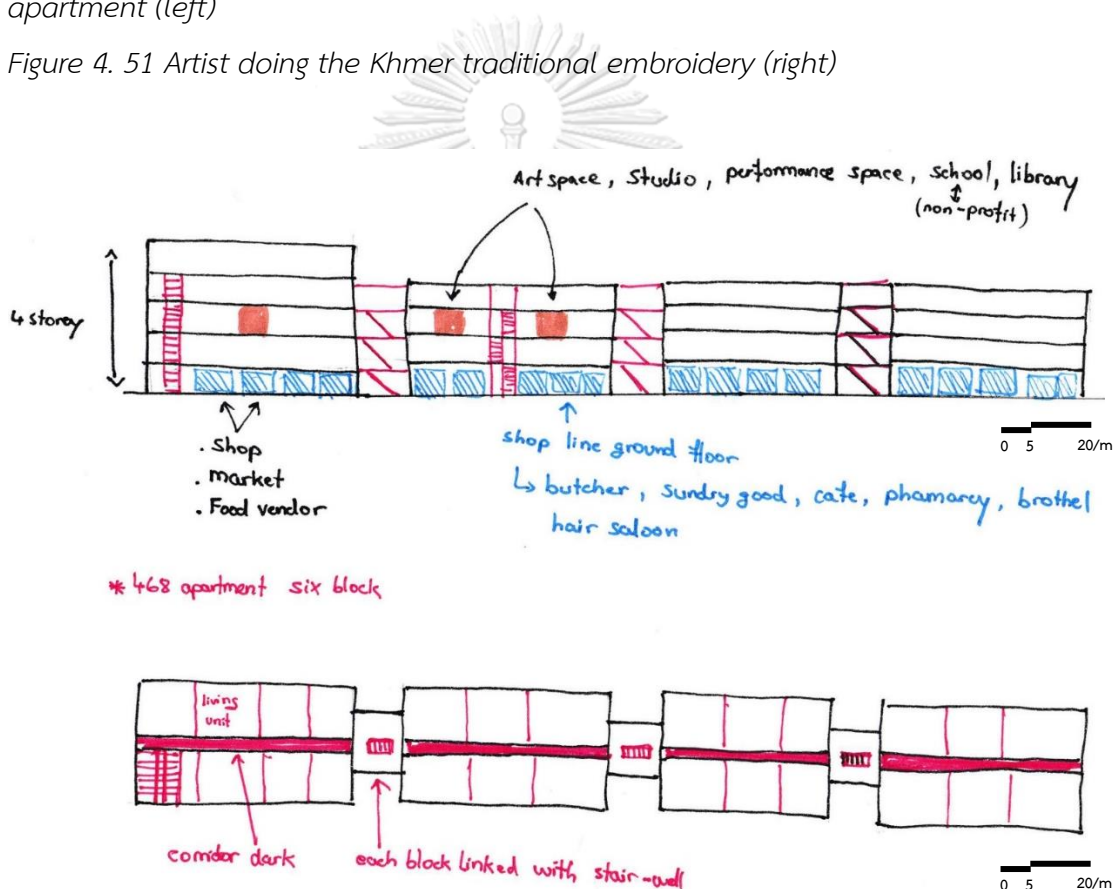 apartment (left)
Figure 4. 51 Artist doing the Khmer traditional embroidery (right)
Art space, Studio, performance space, school, library
(non-profit)
4 storey
. Shop
. market
. Food vendor
shop line ground floor
↳ butcher, sundry good, cafe, phamarcy, brothel
hair saloon
0 5 20/m
* 468 apartment six block
living
unit
corridor dark
each block linked with stair-well
0 5 20/m